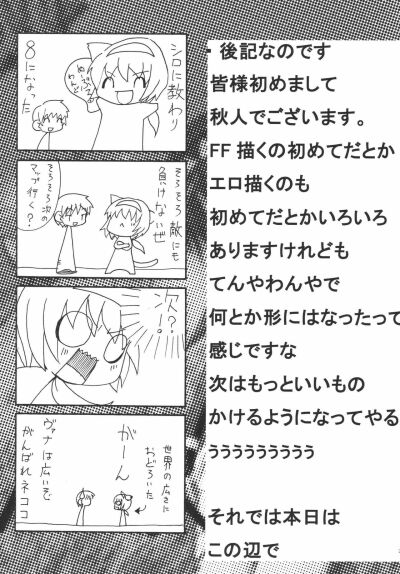 シロに教わり
8になった
そろそろ敵にも
負けないぜ
そろそろ次の
マップ行く？
次!?
がーん
世界の広さに
おどろいた
ヴァナは広いぞ
がんばれネココ
・後記なのです
皆様初めまして
秋人でございます。
FF描くの初めてだとか
エロ描くのも
初めてだとかいろいろ
ありますけれども
てんやわんやで
何とか形にはなったって
感じですな
次はもっといいもの
かけるようになってやる
ぅぅぅぅぅぅぅぅぅ
それでは本日は
この辺で